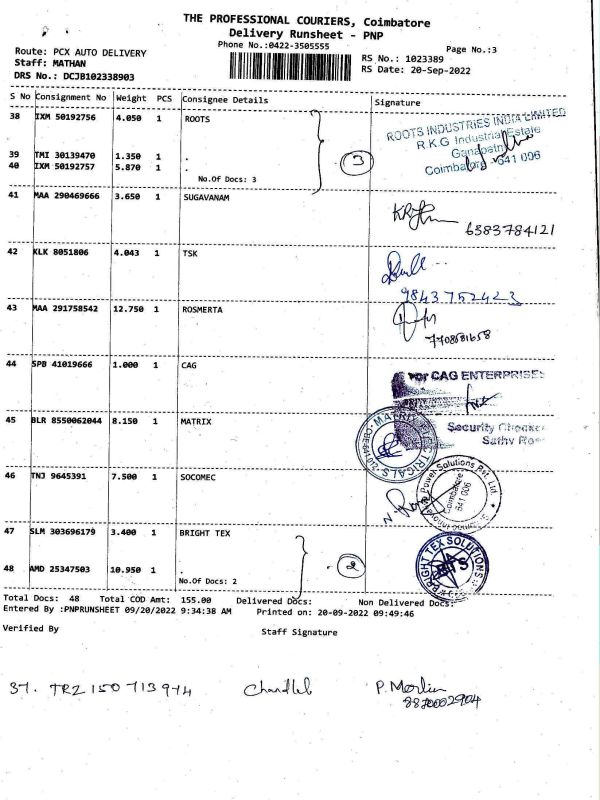 THE PROFESSIONAL COURIERS, Coimbatore
Delivery Runsheet - PNP
Phone No.:0422-3505555
Page No.:3
Route: PCX AUTO DELIVERY
RS No.: 1023389
Staff: MATHAN
RS Date: 20-Sep-2022
DRS No.: DCJB102338903
S No Consignment No Weight PCS Consignee Details Signature
38 IXM 50192756 4.050 1 ROOTS
ROOTS INDUSTRIES INDIA LIMITED
R.K.G Industrial Estate
Ganapathy
Coimbatore - 641 006
39 TMI 30139470 1.350 1 .
3
40 IXM 50192757 5.870 1 .
No.Of Docs: 3
41 MAA 290469666 3.650 1 SUGAVANAM
6383784121
42 KLK 8051806 4.043 1 TSK
9843752423
43 MAA 291758542 12.750 1 ROSMERTA
7708581658
44 SPB 41019666 1.000 1 CAG
For CAG ENTERPRISES
45 BLR 8550062044 8.150 1 MATRIX
Security Checked
46 TNJ 9645391 7.500 1 SOCOMEC
Power Solutions Pvt. Ltd.
Coimbatore
641 006
47 SLM 303696179 3.400 1 BRIGHT TEX
2
BRIGHT TEX SOLUTIONS
48 AMD 25347503 10.950 1 .
No.Of Docs: 2
Total Docs: 48 Total COD Amt: 155.00 Delivered Docs: Non Delivered Docs:
Entered By :PNPRUNSHEET 09/20/2022 9:34:38 AM Printed on: 20-09-2022 09:49:46
Verified By Staff Signature
37. TRZ 150713974 P. Merlin
8870002904